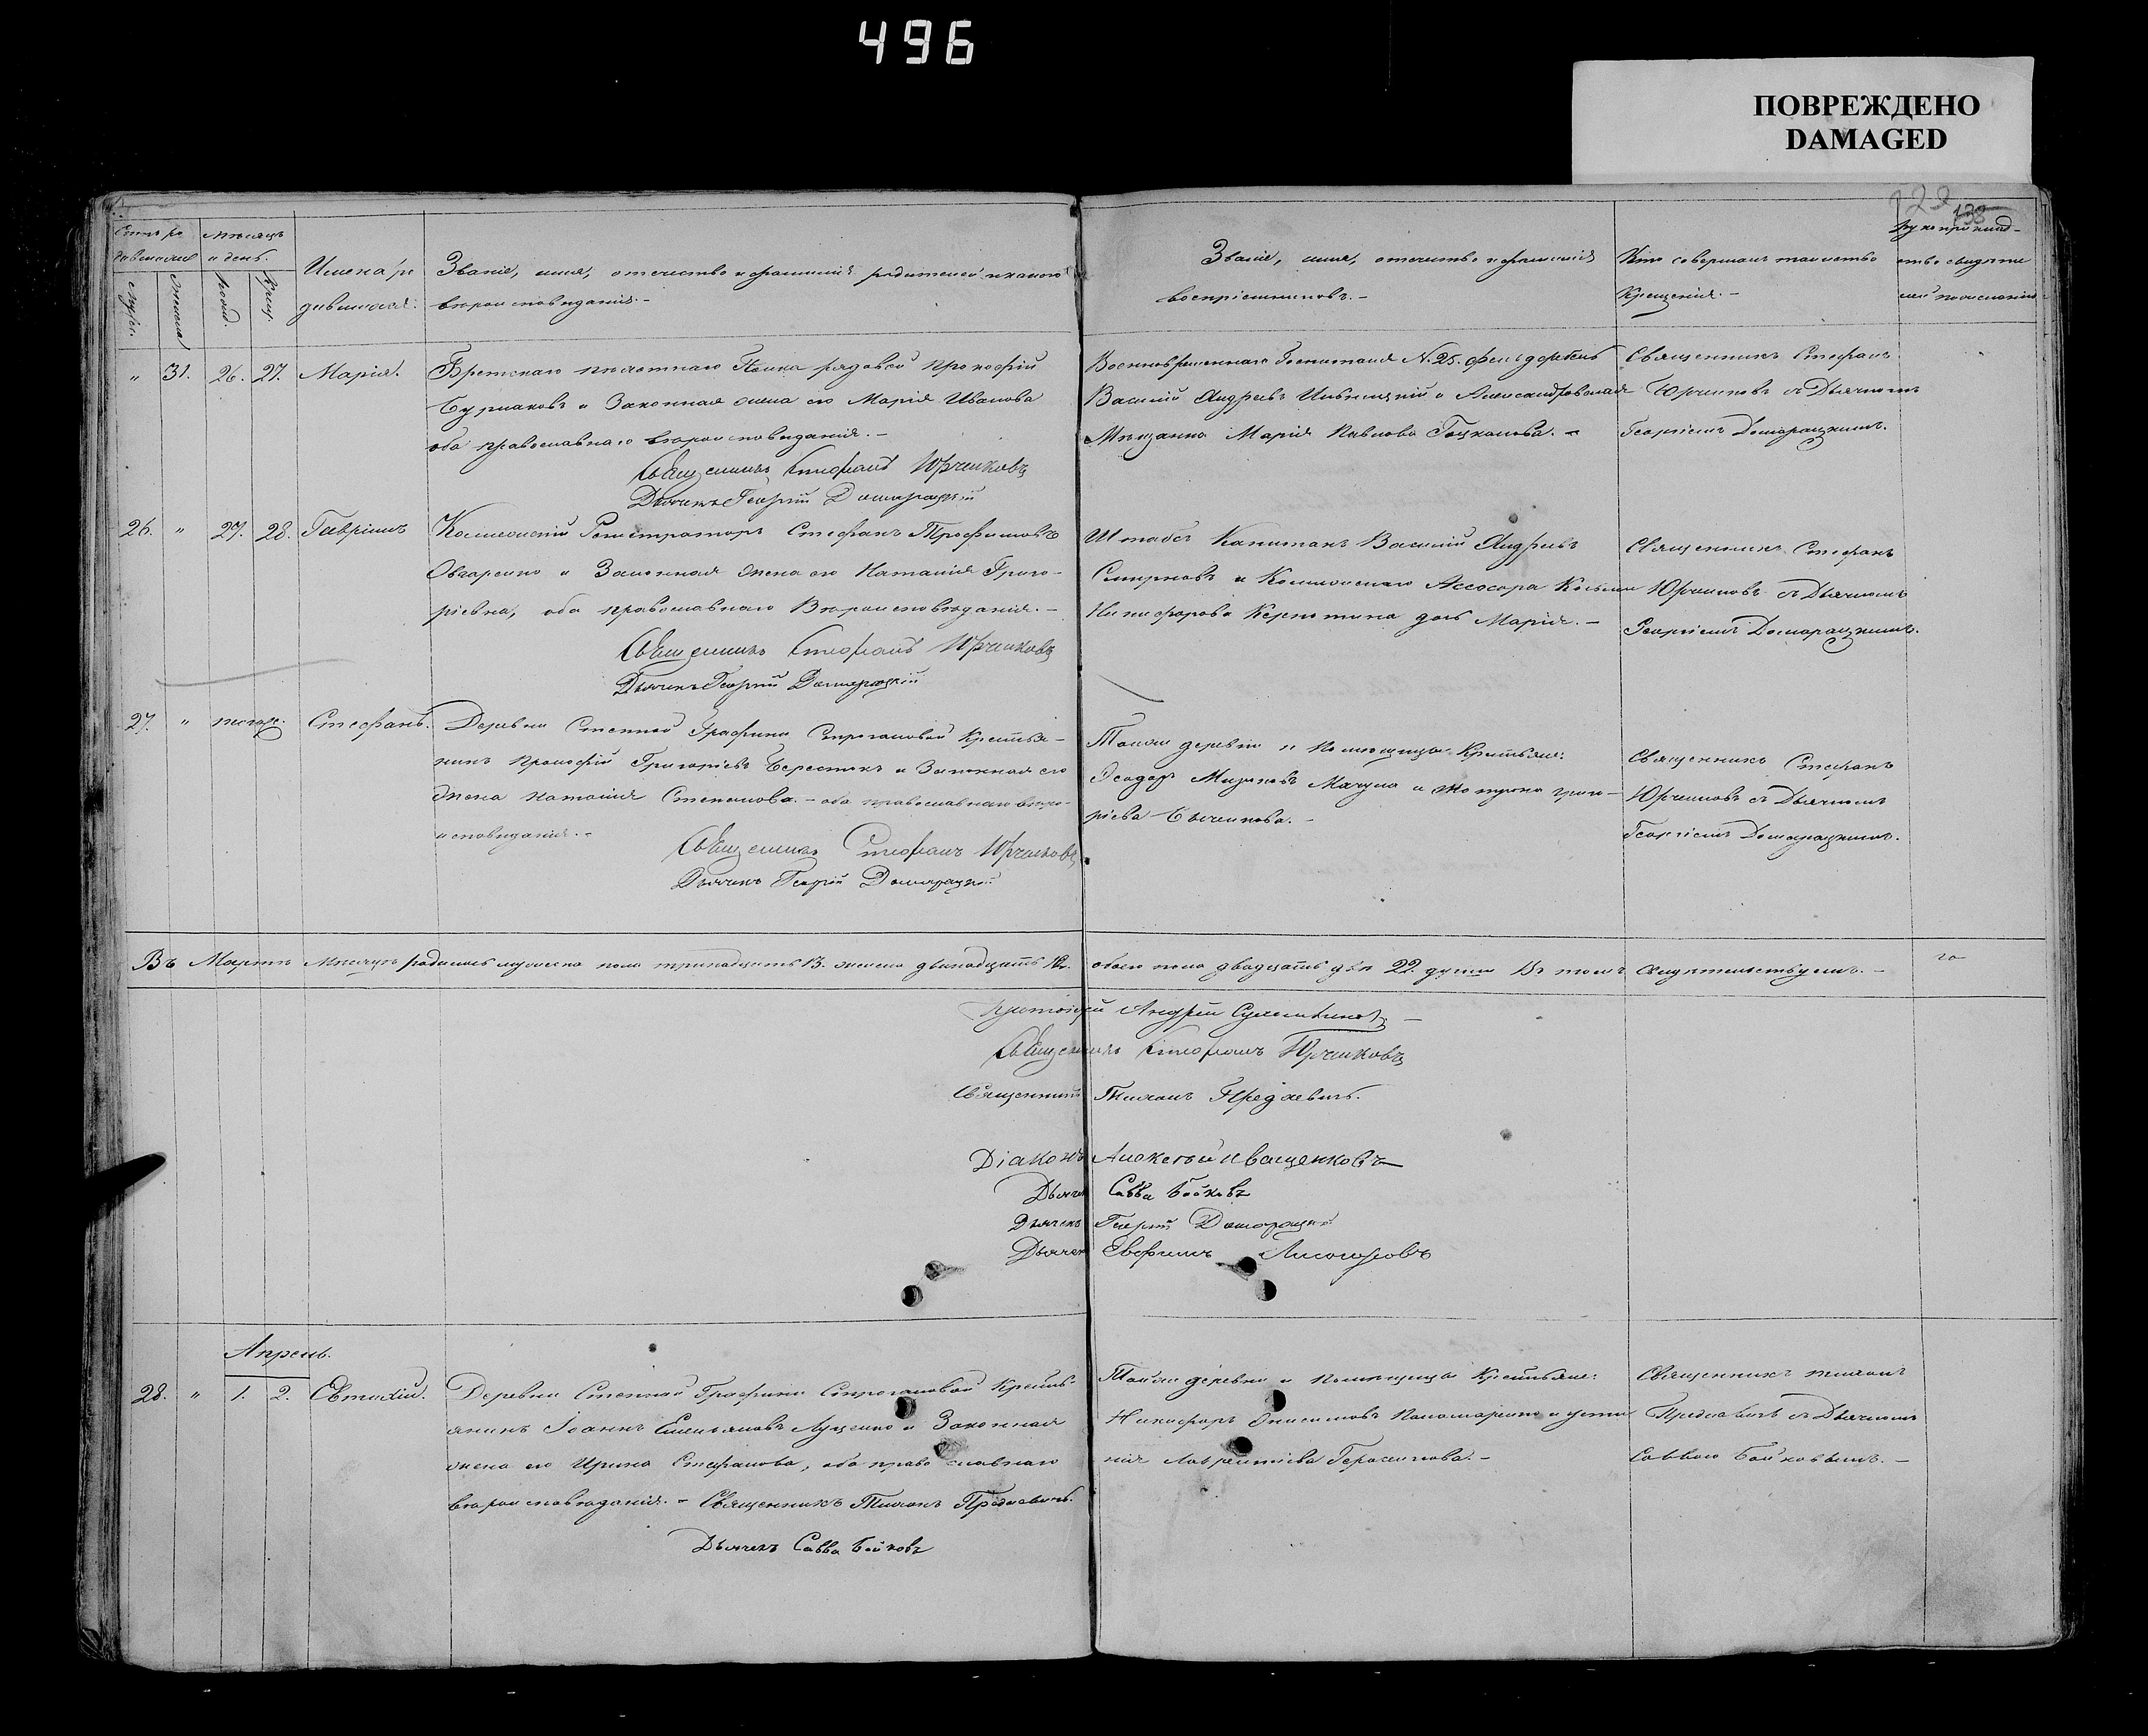 496
ПОВРЕЖДЕНО
DAMAGED
138
мѣсяцъ
и день.
Имена ро
дившихся.
Званіе, имя, отечество и фамилія родителей и какого
вѣроисповѣданія.-
Званіе, имя, отечество и фамилія
воспріемниковъ.-
Кто совершалъ таинство
Крещенія.-
" 31. 26. 27. Марія.
полка рядовой Прокофій
и Законная жена его Марія Иванова
оба православнаго вѣроисповѣданія.-
Священникъ Стефанъ Юрченковъ
Дьячекъ Георгій Домарацкій
Военновременнаго Госпиталя N. 25. фельдфебель
Василій Андреевъ и Александровская
Мѣщанка Марія Павлова
Священникъ Стефанъ
Юрченковъ съ Дьячкомъ
Георгіемъ Домарацкимъ.
26. " 27. 28. Гавріилъ
Коллежскій Регистраторъ Стефанъ Трофимовъ
Овчаренко и Законная жена его Наталія Григо-
ріевна, оба православнаго Вѣроисповѣданія.-
Священникъ Стефанъ Юрченковъ
Дьячекъ Георгій Домарацкій
Штабсъ Капитанъ Василій Андреевъ
Смирновъ и Коллежскаго Ассесора Косьмы
Никифорова дочь Марія.-
Священникъ Стефанъ
Юрченковъ съ Дьячкомъ
Георгіемъ Домарацкимъ.
27. " Стефанъ.
Деревни Степной Графини Строгановой Крестья-
нинъ Прокофій Григорьевъ Берестокъ и Законная его
Жена Наталія Степанова.- оба православнаго вѣро-
исповѣданія.-
Священникъ Стефанъ Юрченковъ
Дьячекъ Георгій Домарацкій
Той же деревни и Помѣщицы Крестьяне:
Ѳеодоръ и григо-
рьева
Священникъ Стефанъ
Юрченковъ съ Дьячкомъ
Георгіемъ Домарацкимъ.
Въ Мартѣ Мѣсяцѣ родилось мужеска пола тринадцать 13. женска
обоего пола двадцать два 22. души Въ томъ свидѣтельствуемъ.-
Протоіерей Андрей
Священникъ Стефанъ Юрченковъ
Священникъ Тихонъ
Діаконъ Алексѣй Иващенковъ
Дьячекъ Савва Бойковъ
Дьячекъ Георгій Домарацкій
Дьячекъ Лисогоровъ
Апрель.
28. " 1. 2. Евтихій.
Деревни Степной Графини Строгановой Кресть-
янинъ Іоаннъ Емельяновъ Луценко и Законная
жена его Ирина Стефанова, оба православнаго
вѣроисповѣданія.- Священникъ Тихонъ
Дьячекъ Савва Бойковъ
Той же деревни и Помѣщицы Крестьяне:
Никифоръ Онисимовъ Пономаренко и Усти
нія Лаврентіева Герасимова.-
Священникъ Тихонъ
съ Дьячкомъ
Саввою Бойковымъ.-